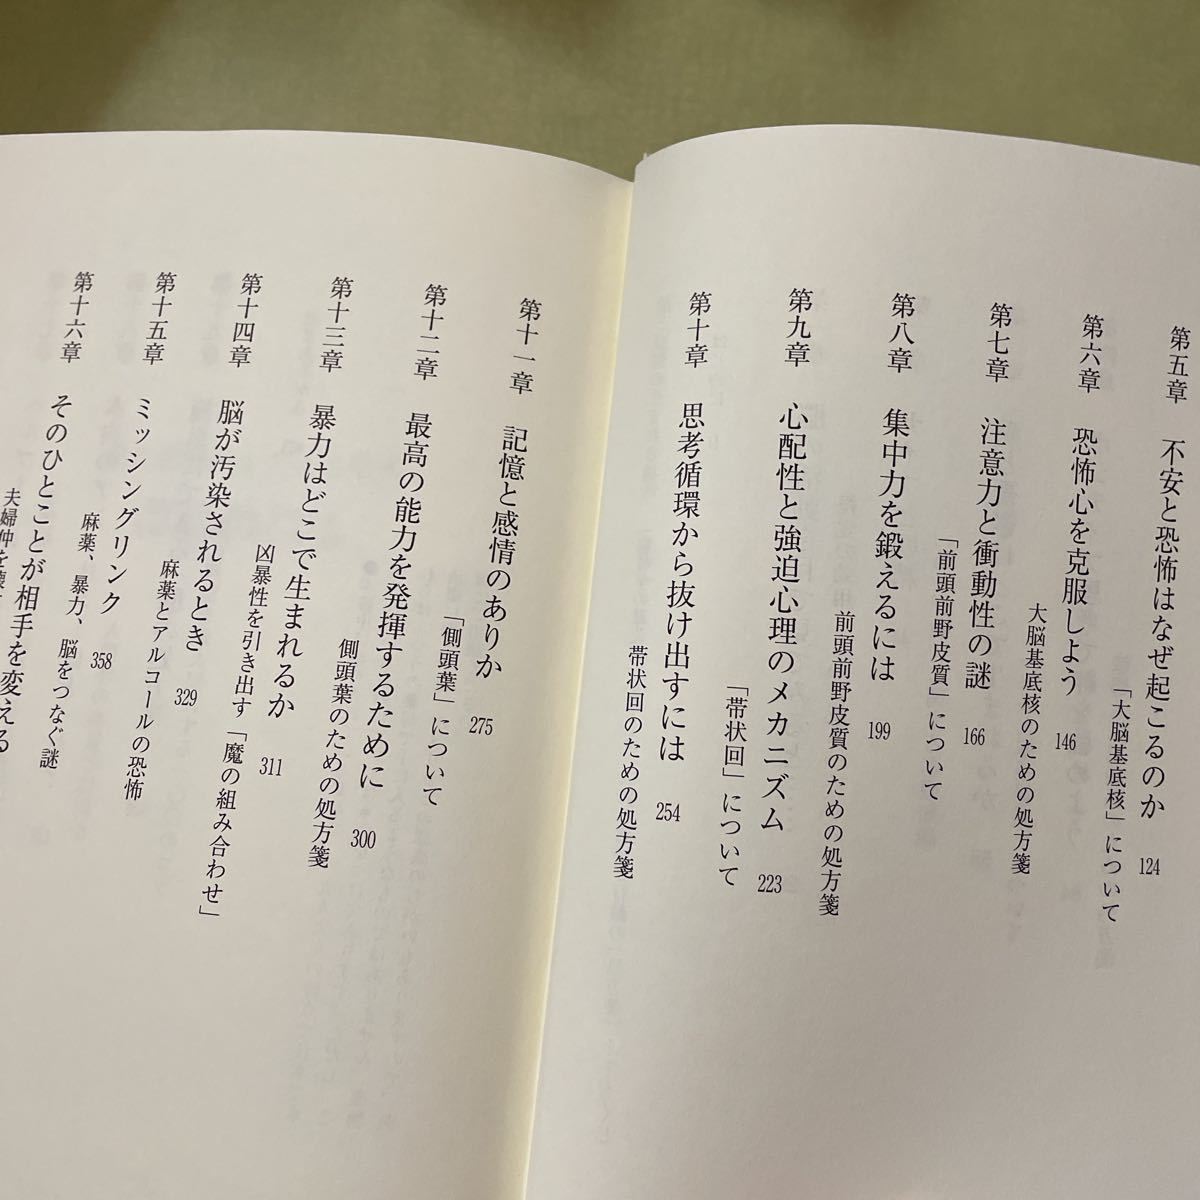 第五章　不安と恐怖はなぜ起こるのか
「大脳基底核」について　124
第六章　恐怖心を克服しよう
大脳基底核のための処方箋　146
第七章　注意力と衝動性の謎
「前頭前野皮質」について　166
第八章　集中力を鍛えるには
前頭前野皮質のための処方箋　199
第九章　心配性と強迫心理のメカニズム
「帯状回」について　223
第十章　思考循環から抜け出すには
帯状回のための処方箋　254
第十一章　記憶と感情のありか
「側頭葉」について　275
第十二章　最高の能力を発揮するために
側頭葉のための処方箋　300
第十三章　暴力はどこで生まれるか
凶暴性を引き出す「魔の組み合わせ」　311
第十四章　脳が汚染されるとき
麻薬とアルコールの恐怖　329
第十五章　ミッシングリンク
麻薬、暴力、脳をつなぐ謎　358
第十六章　そのひとことが相手を変える
夫婦仲を壊